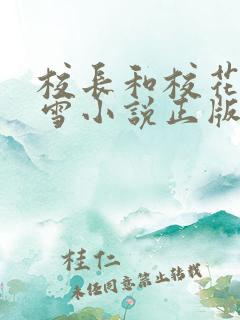 校長和校花
雪小說正版
桂仁
未经同意禁止转载